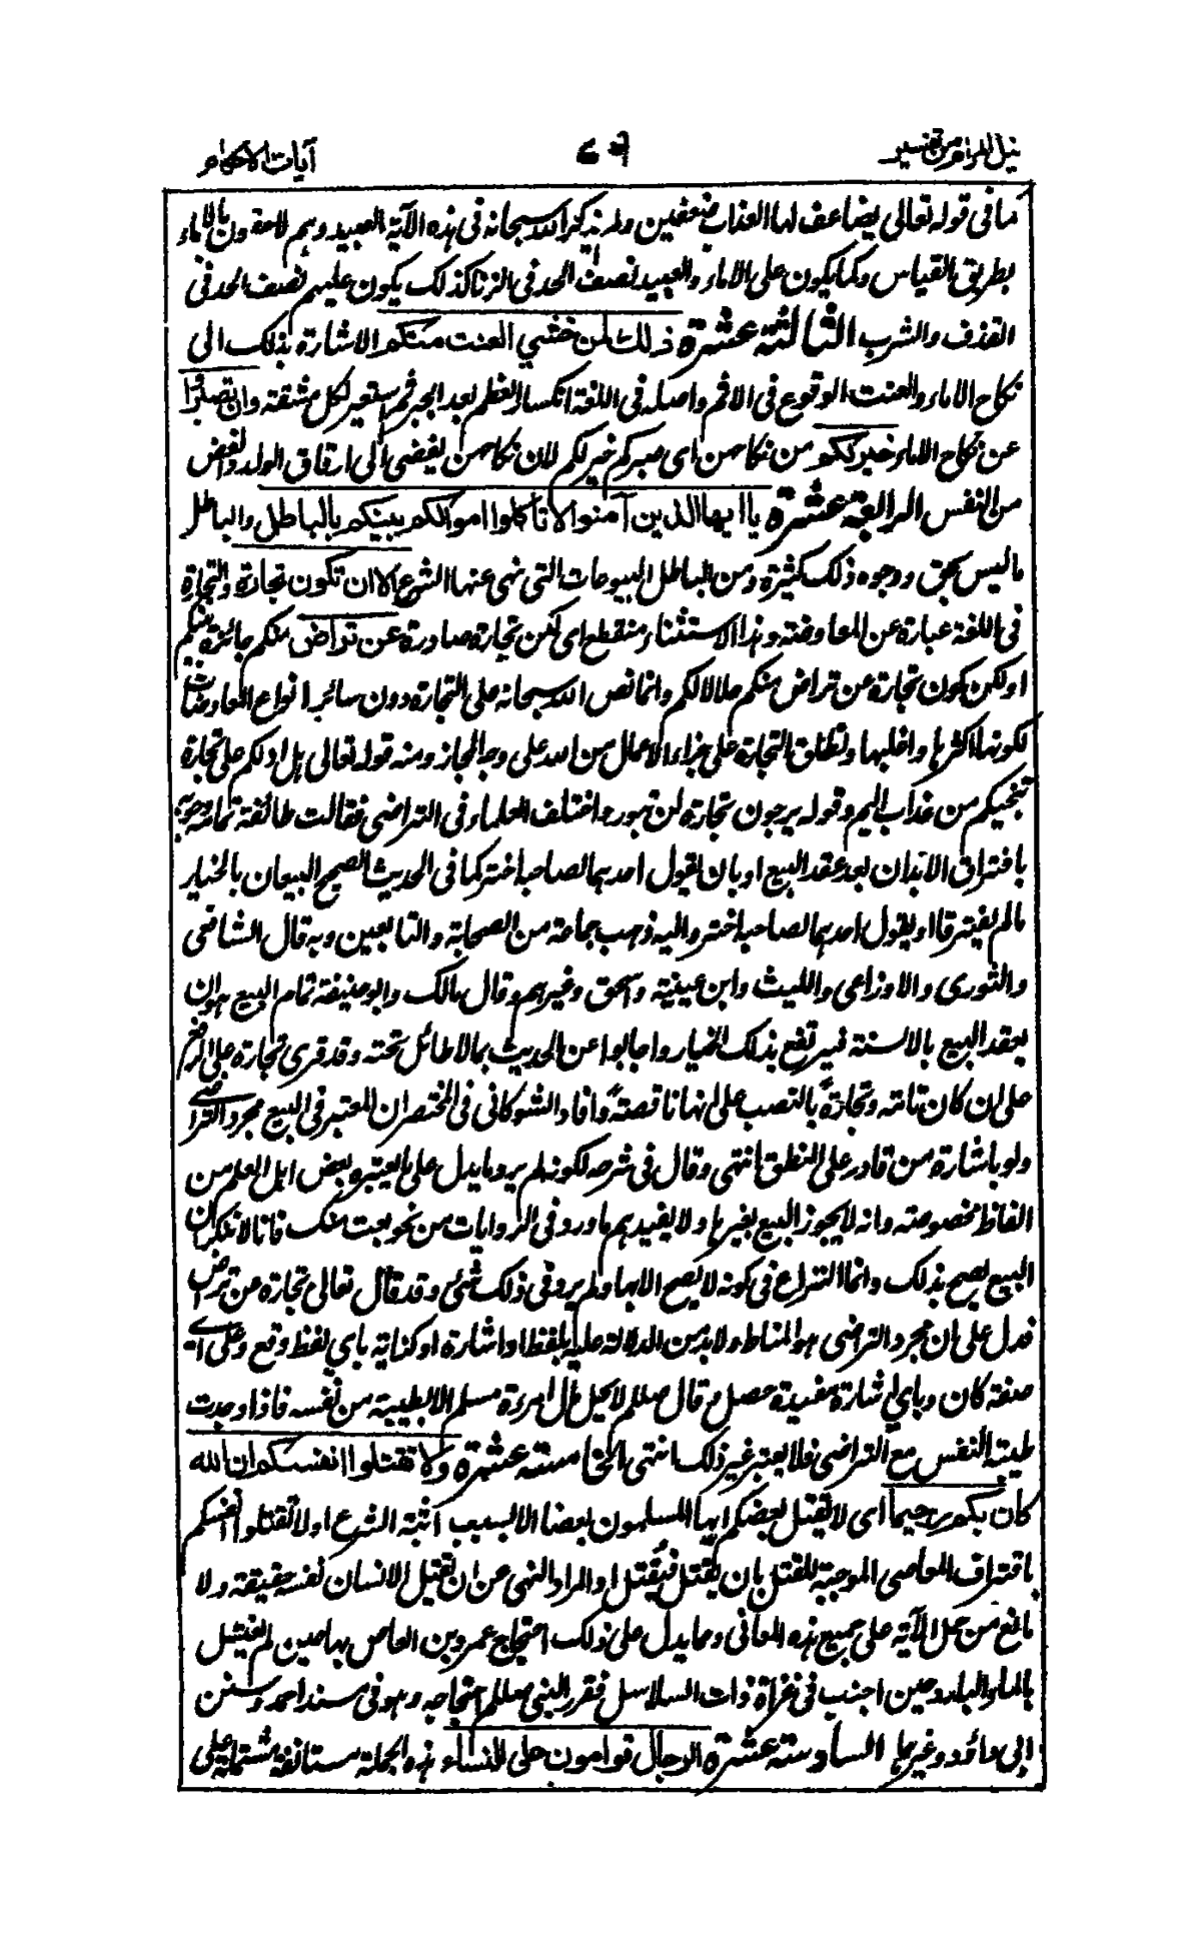 نيل المرام من تفسير ٧٦ آيات الاحكام
كما في قوله تعالى يضاعف لها العذاب ضعفين ولم يذكر الله سبحانه في هذه الآية العبيد وهم لاحقون بالاماء
بطريق القياس وكما يكون على الاماء والعبيد نصف الحد في الزنا كذلك يكون عليهم نصف الحد في
القذف والشرب الثالثة عشرة ذلك لمن خشي العنت منكم الاشارة بذلك الى
نكاح الاماء والعنت الوقوع في الاثم واصله في اللغة انكسار العظم بعد الجبر ثم استعير لكل مشقة وان تصبروا
عن نكاح الاماء خير لكم من نكاحهن اى صبركم خير لكم لان نكاحهن يفضى الى ارقاق الولد والغض
من النفس الرابعة عشرة يا ايها الذين آمنوا لا تاكلوا اموالكم بينكم بالباطل والباطل
ما ليس بحق ووجوه ذلك كثيرة ومن الباطل البيوعات التى نهى عنها الشرع الا ان تكون تجارة والتجارة
في اللغة عبارة عن المعاوضة وهذا الاستثناء منقطع اى لكن تجارة صادرة عن تراض منكم جائزة بينكم
او لكن كون تجارة عن تراض منكم حلالا لكم وانما نص الله سبحانه على التجارة دون سائر انواع المعاوضات
لكونها اكثرها واغلبها وتطلق التجارة على جزاء الاعمال من الله على وجه المجاز ومنه قوله تعالى هل ادلكم على تجارة
تنجيكم من عذاب اليم وقوله يرجون تجارة لن تبور واختلف العلماء في التراضى فقالت طائفة تمامه وجوبه
بافتراق الابدان بعد عقد البيع او بان يقول احدهما لصاحبه اختر كما في الحديث الصحيح البيعان بالخيار
مالم يفترقا او يقول احدهما لصاحبه اختر واليه ذهب جماعة من الصحابة والتابعين وبه قال الشافعى
والثورى والاوزاعى والليث وابن عيينة واسحق وغيرهم وقال مالك وابو حنيفة تمام البيع هو ان
يعقد البيع بالالسنة فيرتفع بذلك الخيار واجابوا عن الحديث بما لا طائل تحته وقد قرى تجارة على الرفع
على ان كان تامة وتجارةً بالنصب على انها ناقصة وافاد الشوكانى في المختصر ان المعتبر في البيع مجرد التراضى
ولو باشارة من قادر على النطق انتهى وقال في شرحه لكونه لم يرد ما يدل على ما يعتبره بعض اهل العلم من
الفاظ مخصوصة وانه لا يجوز البيع بغيرها ولا يفيدهم ما ورد في الروايات من نحو بعت منك فانا لا ننكر ان
البيع يصح بذلك وانما النزاع في كونه لا يصح الا بها ولم يرد في ذلك شئ وقد قال تعالى تجارة عن تراض
فدل على ان مجرد التراضى هو المناط ولا بد من الدلالة عليه بلفظ او اشارة او كناية باي لفظ وقع وعلى اى
صفة كان وباي اشارة مفيدة حصل وقال صللم لا يحل مال امرءة مسلم الا بطيبة من نفسه فاذا وجدت
طيبة النفس مع التراضى فلا يعتبر غير ذلك انتهى الخامسة عشرة ولا تقتلوا انفسكم ان الله
كان بكم رحيما اى لا يقتل بعضكم ايها المسلمون بعضا الا بسبب اثبته الشرع او لا تقتلوا انفسكم
باقتراف المعاصى الموجبة للقتل بان يقتل فيُقتل او المراد النهى عن ان يقتل الانسان نفسه حقيقة ولا
مانع من حمل الآية على جميع هذه المعانى ومما يدل على ذلك احتجاج عمرو بن العاص بها حين لم يغتسل
بالماء البارد حين اجنب في غزاة ذات السلاسل فقرر النبى صللم احتجاجه وهو في مسند احمد وسنن
ابى داؤد وغيرهما السادسة عشرة الرجال قوامون على النساء هذه الجملة مستانفة مشتملة على